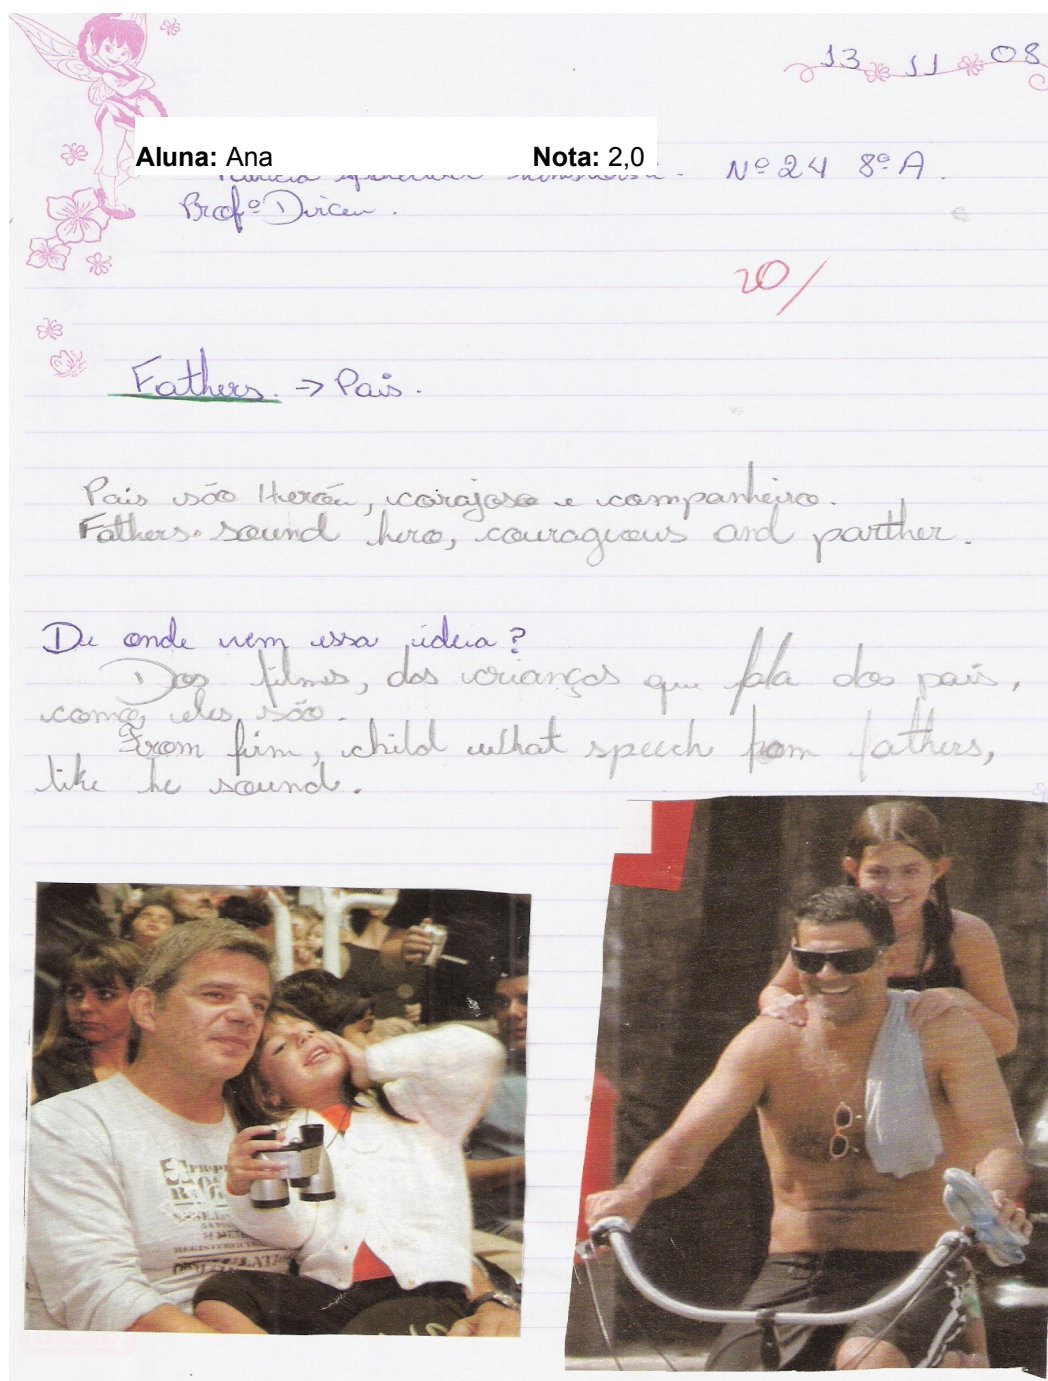 13 11 08
Aluna: Ana Nota: 2,0
Nº 24 8º A.
Profº Dirceu.
20/
Fathers. → Pais.
Pais são Heróis, corajoso e companheiro.
Fathers sound hero, courageous and parther.
De onde vem essa ideia?
Dos filmes, das crianças que fala dos pais,
como eles são.
From firm, child what speech from fathers,
like he sound.